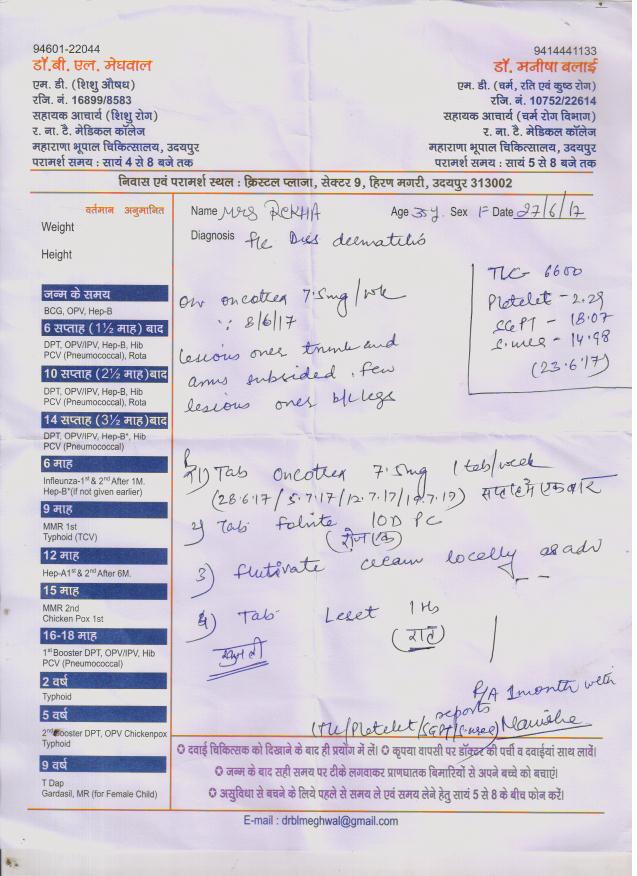 94601-22044
डॉ.बी. एल. मेघवाल
एम. डी. (शिशु औषध)
रजि. नं. 16899/8583
सहायक आचार्य (शिशु रोग)
र. ना. टै. मेडिकल कॉलेज
महाराणा भूपाल चिकित्सालय, उदयपुर
परामर्श समय : सायं 4 से 8 बजे तक
9414441133
डॉ. मनीषा बलाई
एम. डी. (चर्म, रति एवं कुष्ठ रोग)
रजि. नं. 10752/22614
सहायक आचार्य (चर्म रोग विभाग)
र. ना. टै. मेडिकल कॉलेज
महाराणा भूपाल चिकित्सालय, उदयपुर
परामर्श समय : सायं 5 से 8 बजे तक
निवास एवं परामर्श स्थल : क्रिस्टल प्लाजा, सेक्टर 9, हिरण मगरी, उदयपुर 313002
वर्तमान अनुमानित
Weight
Height
जन्म के समय
BCG, OPV, Hep-B
6 सप्ताह (1½ माह) बाद
DPT, OPV/IPV, Hep-B, Hib
PCV (Pneumococcal), Rota
10 सप्ताह (2½ माह)बाद
DPT, OPV/IPV, Hep-B, Hib
PCV (Pneumococcal), Rota
14 सप्ताह (3½ माह)बाद
DPT, OPV/IPV, Hep-B*, Hib
PCV (Pneumococcal)
6 माह
Influenza-1st & 2nd After 1M.
Hep-B*(if not given earlier)
9 माह
MMR 1st
Typhoid (TCV)
12 माह
Hep-A1st & 2nd After 6M.
15 माह
MMR 2nd
Chicken Pox 1st
16-18 माह
1st Booster DPT, OPV/IPV, Hib
PCV (Pneumococcal)
2 वर्ष
Typhoid
5 वर्ष
2nd Booster DPT, OPV Chickenpox
Typhoid
9 वर्ष
T Dap
Gardasil, MR (for Female Child)
Name Mrs REKHA Age 35y Sex F Date 27/6/17
Diagnosis dermatitis
TLC 6600
Platelet - 2.29
SGPT - 18.07
S. urea - 14.98
(23.6.17)
on oncotrex 7.5mg/wk
∵ 8/6/17
Lesions over trunk and
arms subsided. few
lesions over b/l legs
R
1) Tab Oncotrex 7.5mg 1 tab/week
(28.6.17/5.7.17/12.7.17/19.7.17) सप्ताह में एक बार
2) Tab Folvite 1OD PC
(रोज एक)
3) Flutivate cream locally as adv
4) Tab Leset 1 Hs
(रात)
खुजली
R/A 1month with
reports
(TLC/Platelet/SGPT/S.urea) Manisha
दवाई चिकित्सक को दिखाने के बाद ही प्रयोग में लें। कृपया वापसी पर डॉक्टर की पर्ची व दवाईयां साथ लावें।
जन्म के बाद सही समय पर टीके लगवाकर प्राणघातक बिमारियों से अपने बच्चे को बचाएं।
असुविधा से बचने के लिये पहले से समय ले एवं समय लेने हेतु सायं 5 से 8 के बीच फोन करें।
E-mail : drblmeghwal@gmail.com